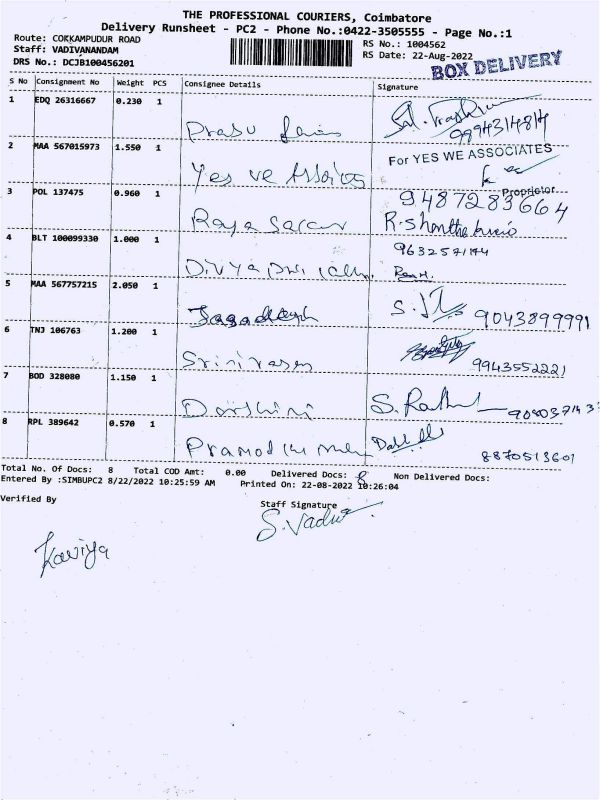 THE PROFESSIONAL COURIERS, Coimbatore
Delivery Runsheet - PC2 - Phone No.:0422-3505555 - Page No.:1
Route: COKKAMPUDUR ROAD
Staff: VADIVANANDAM
DRS No.: DCJB100456201
RS No.: 1004562
RS Date: 22-Aug-2022
BOX DELIVERY
S No Consignment No Weight PCS Consignee Details Signature
1 EDQ 26316667 0.230 1 Prabu
9994314814
2 MAA 567015973 1.550 1 Yes we
For YES WE ASSOCIATES
Proprietor
3 POL 137475 0.960 1 Raja
9487283664
4 BLT 100099330 1.000 1 Divya
5 MAA 567757215 2.050 1 Jagadeesh 9043899991
6 TNJ 106763 1.200 1 Srinivasan 9943552221
7 BOD 328080 1.150 1 Darshini
8 RPL 389642 0.570 1 Pramod 8870513601
Total No. Of Docs: 8 Total COD Amt: 0.00 Delivered Docs: 8 Non Delivered Docs:
Entered By :SIMBUPC2 8/22/2022 10:25:59 AM Printed On: 22-08-2022 10:26:04
Verified By Staff Signature
Kaviya